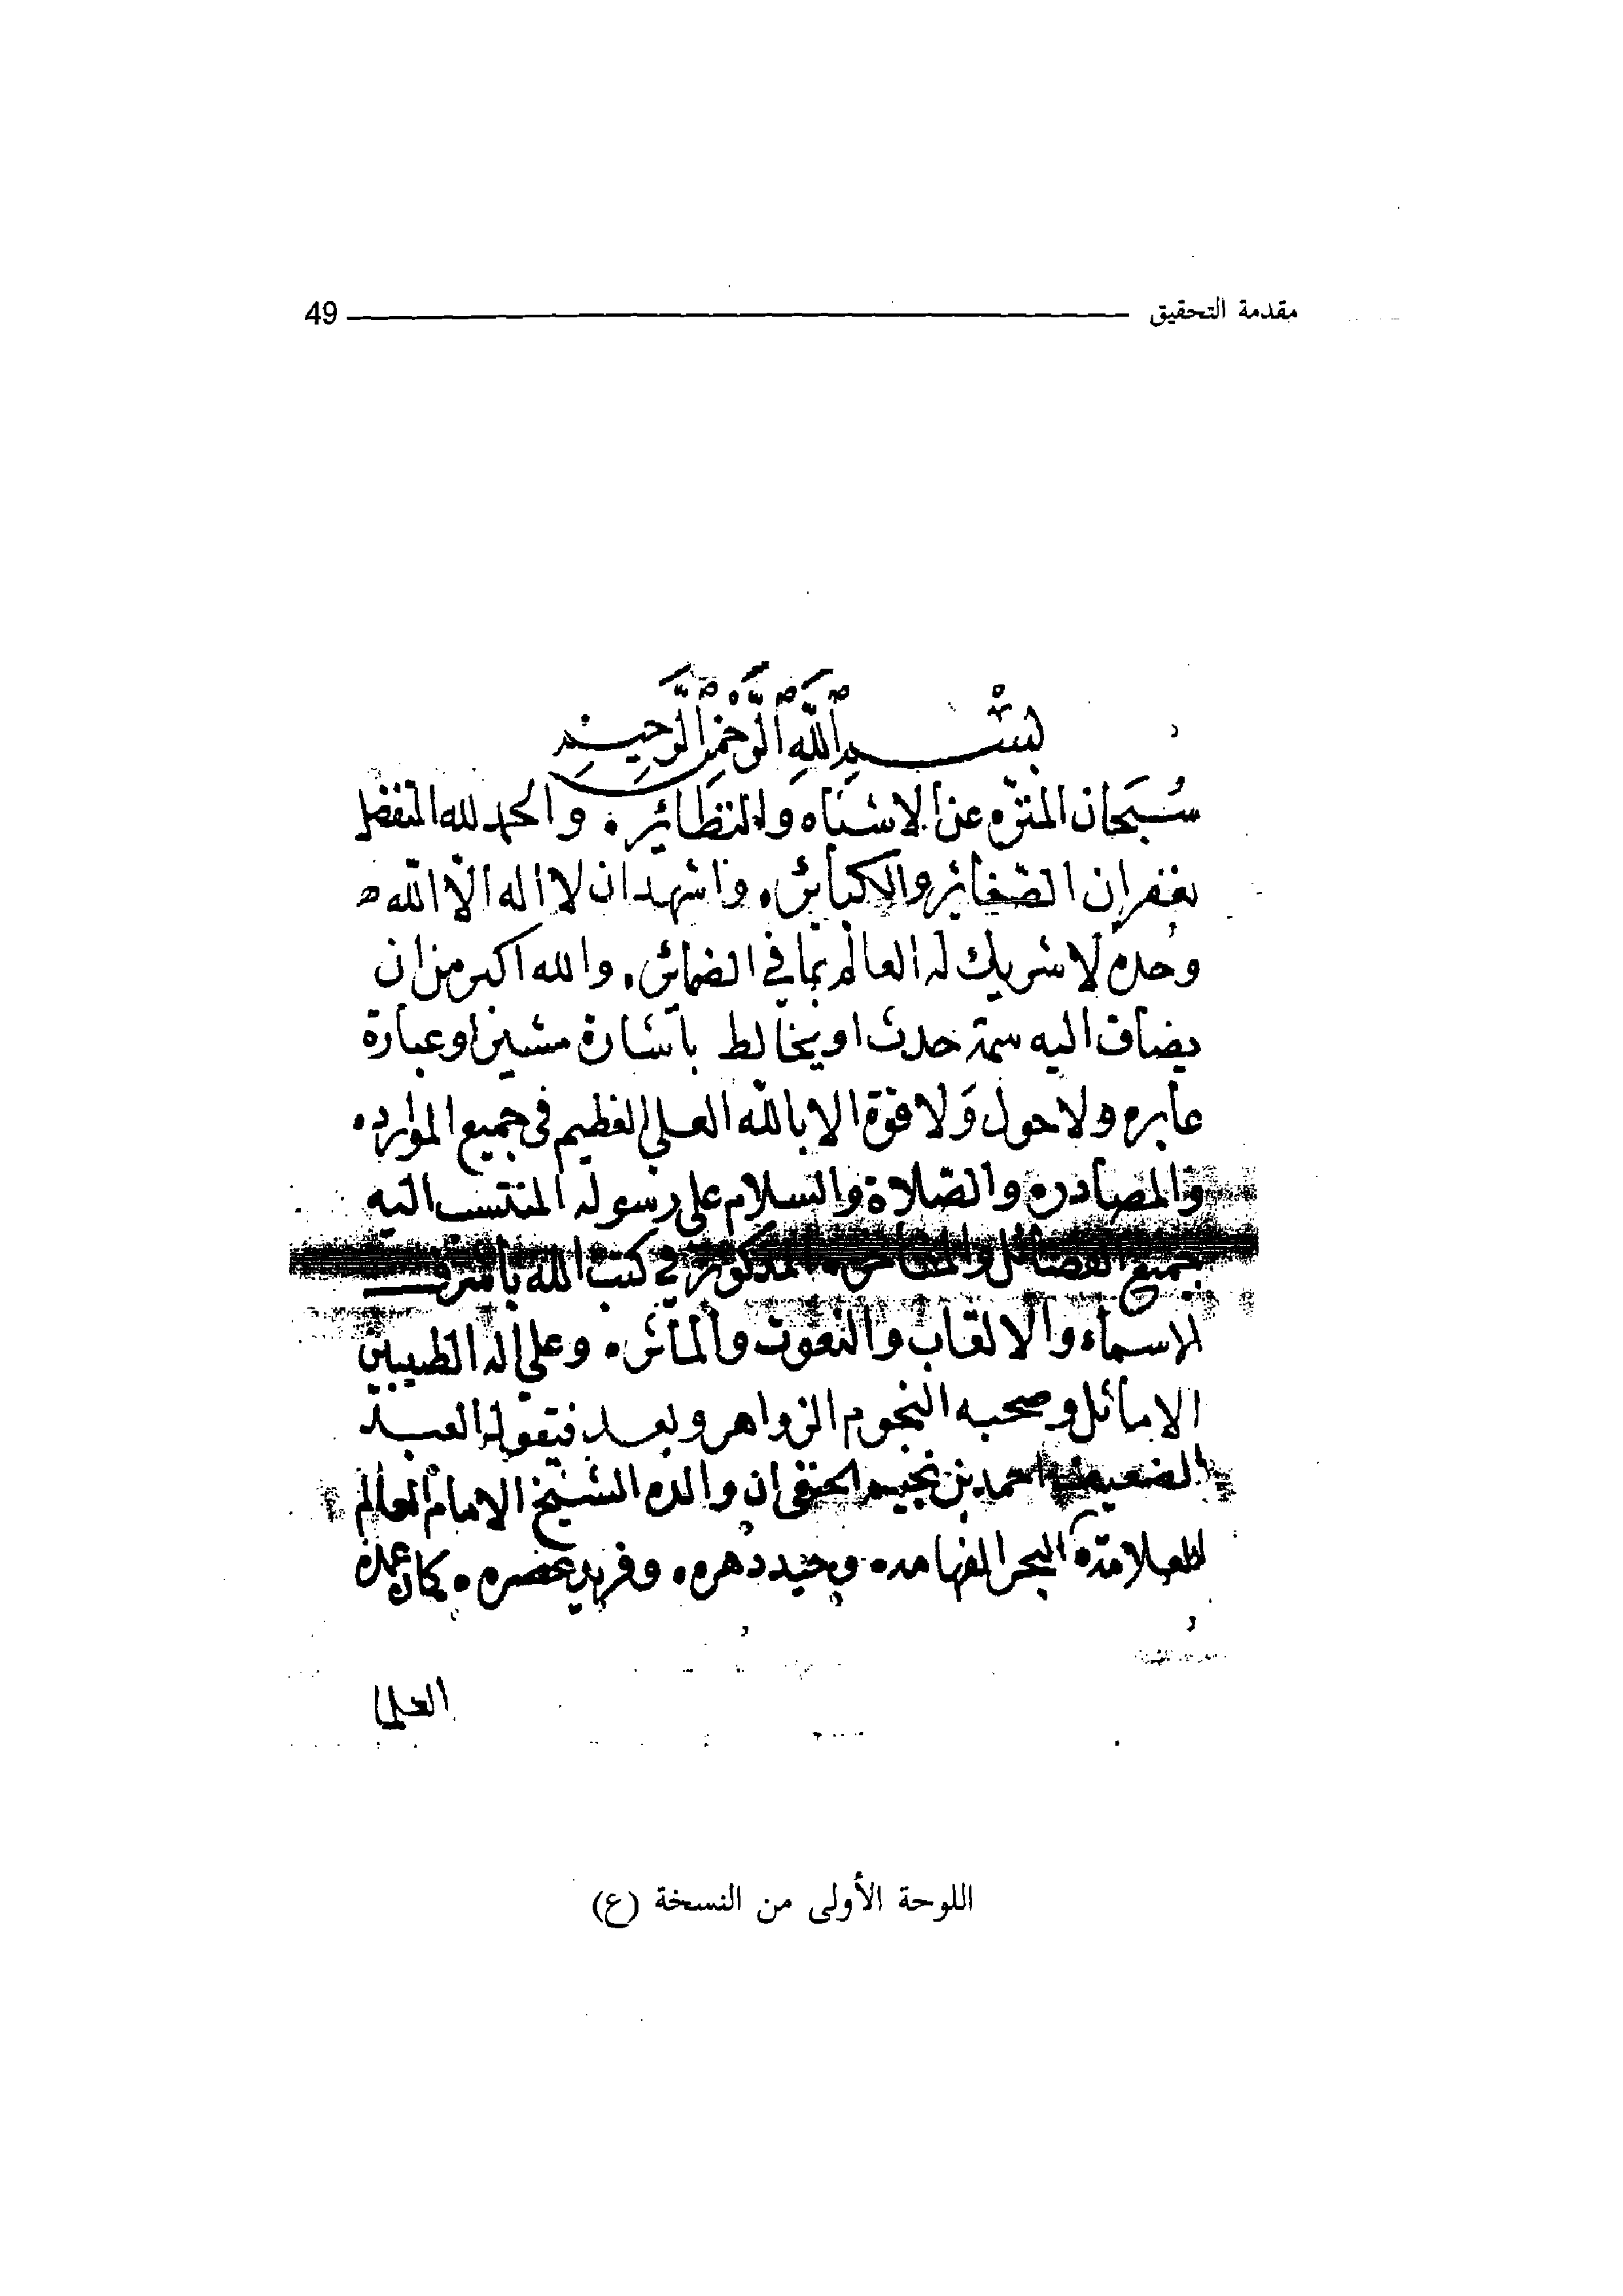 مقدمة التحقيق 49
بسم الله الرحمن الرحيم
سبحان المنزه عن الاشباه والنظائر والحمد لله المتفضل
بغفران الصغائر والكبائر، واشهد ان لا اله الا الله
وحده لا شريك له العالم بما في الضمائر، والله اكبر من ان
يضاف اليه سمة حدث او يخالط باشارة مشير او عبارة
عابره ولا حول ولا قوة الا بالله العلي العظيم في جميع الموارد
والمصادره والصلاة والسلام على رسوله المنتسب اليه
جميع الفضائل والمفاخر المذكور في كتب الله باشرف
الاسماء والالقاب والنعوت والمآثر، وعلى اله الطيبين
الاماثل وصحبه النجوم الزواهر وبعد فيقول العبد
الضعيف احمد بن نجيم الحنفي ان والده الشيخ الامام العالم
العلامة البحر الفهامه وحيد دهره، وفريد عصره، كان عمدة
العلما
اللوحة الأولى من النسخة (ع)